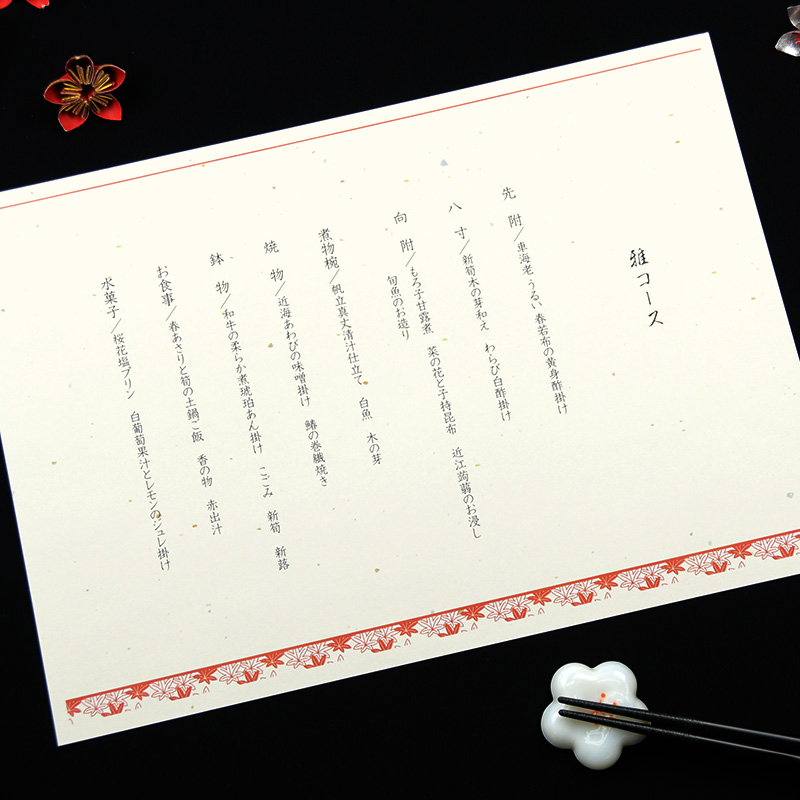 雅コース
先附／車海老 うるい 春若布の黄身酢掛け
八寸／新筍木の芽和え わらび白酢掛け
もろ子甘露煮 菜の花と子持昆布 近江蒟蒻のお浸し
向附／旬魚のお造り
煮物椀／帆立真丈清汁仕立て 白魚 木の芽
焼物／近海あわびの味噌掛け 鰆の巻繊焼き
鉢物／和牛の柔らか煮琥珀あん掛け こごみ 新筍 新蕗
お食事／春あさりと筍の土鍋ご飯 香の物 赤出汁
水菓子／桜花塩プリン 白葡萄果汁とレモンのジュレ掛け